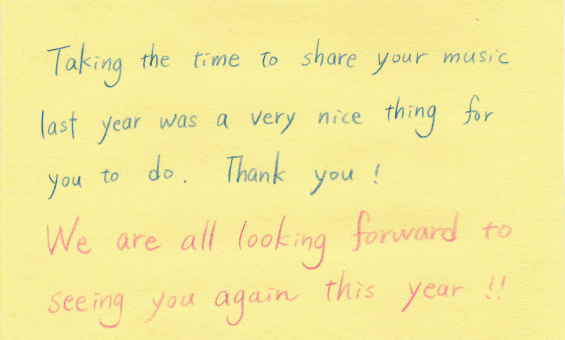 Taking the time to share your music
last year was a very nice thing for
you to do. Thank you!
We are all looking forward to
seeing you again this year!!